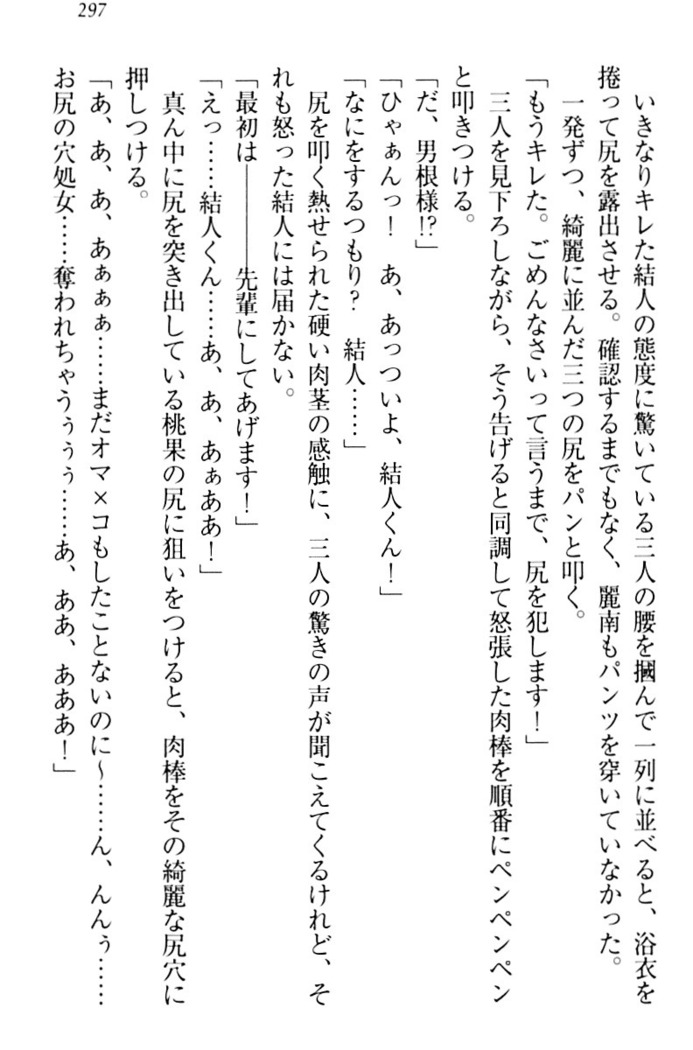 297
いきなりキレた結人の態度に驚いている三人の腰を摑んで一列に並べると、浴衣を
捲って尻を露出させる。確認するまでもなく、麗南もパンツを穿いていなかった。
一発ずつ、綺麗に並んだ三つの尻をパンと叩く。
「もうキレた。ごめんなさいって言うまで、尻を犯します！」
三人を見下ろしながら、そう告げると同調して怒張した肉棒を順番にペンペンペン
と叩きつける。
「だ、男根様!?」
「ひゃぁんっ！　あ、あっついよ、結人くん！」
「なにをするつもり？　結人……」
尻を叩く熱せられた硬い肉茎の感触に、三人の驚きの声が聞こえてくるけれど、そ
れも怒った結人には届かない。
「最初は――――先輩にしてあげます！」
「えっ……結人くん……あ、あ、あぁああ！」
真ん中に尻を突き出している桃果の尻に狙いをつけると、肉棒をその綺麗な尻穴に
押しつける。
「あ、あ、あ、あぁぁぁ……まだオマ×コもしたことないのに～……ん、んんぅ……
お尻の穴処女……奪われちゃうぅぅぅ……あ、ああ、あああ！」